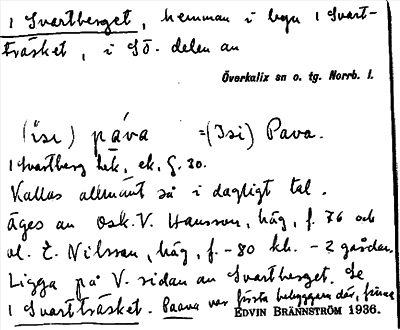 1 Svartberget, hemman i byn 1 Svart-
träsket, i SÖ. delen av
Överkalix sn o. tg. Norrb. l.
(isi) páva =(Isi) Pava.
1 Svartberg hek. ek. g. 30.
Kallas allmänt så i dagligt tal.
äges av Osk. V. Hansson, häg, f. 76 och
al. E. Nilsson, häg, f. -80 kh. - 2 gårdar.
Ligga på V. sidan av Svartberget. Se
1 Svartträsket. Paava var första bebyggaren där, finne
EDVIN BRÄNNSTRÖM 1936.